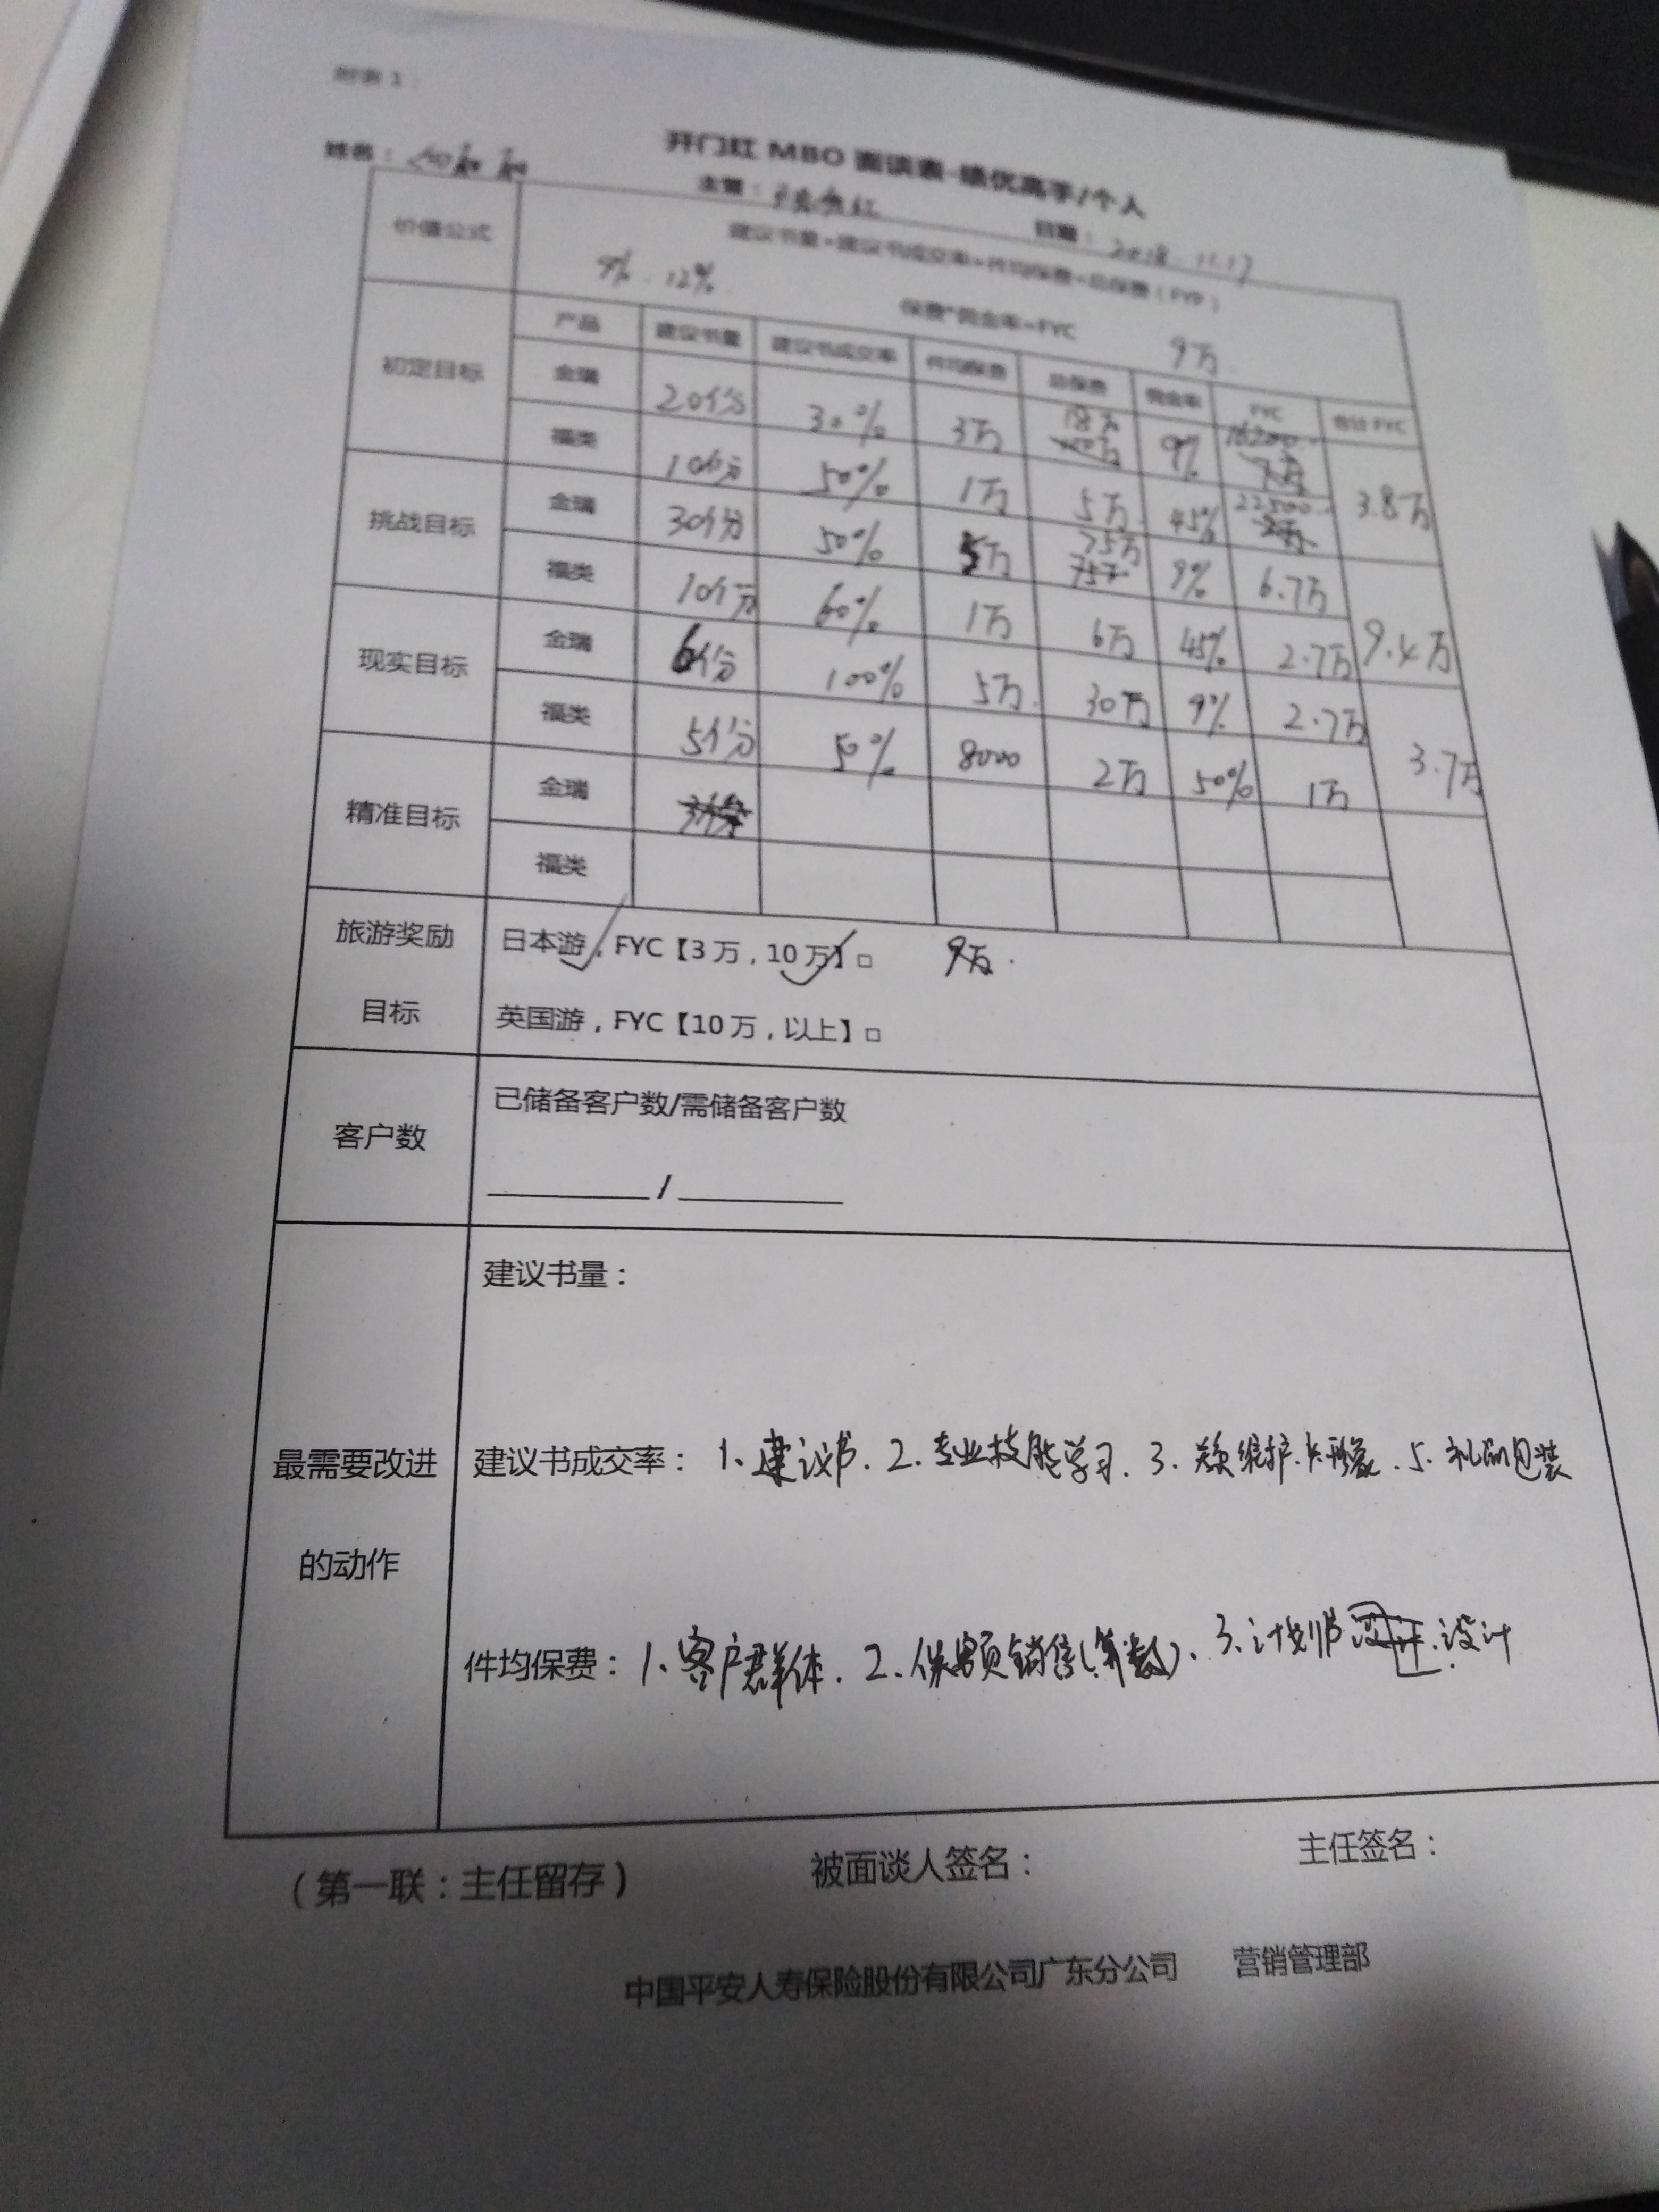 附表 1
开门红 MBO 面谈表-绩优高手/个人
姓名：
主管：
日期： 2018. 11.17
价值公式
建议书量*建议书成交率*件均保费=总保费（FYP）
9% . 12%.
保费*佣金率=FYC
9万.
产品 建议书量 建议书成交率 件均保费 总保费 佣金率 FYC 合计 FYC
初定目标
金瑞 20份 30% 3万 18万 9% 16200
福类 10份 50% 1万 5万 45% 22500
3.8万
挑战目标
金瑞 30份 50% 5万 75万 9% 6.7万
福类 10份 60% 1万 6万 45% 2.7万
9.4万
现实目标
金瑞 6份 100% 5万 30万 9% 2.7万
福类 5份 50% 8000 2万 50% 1万
3.7万
精准目标
金瑞
福类
旅游奖励
目标
日本游，FYC【3 万，10 万】□ 9万.
英国游，FYC【10 万，以上】□
客户数
已储备客户数/需储备客户数
/
最需要改进
的动作
建议书量：
建议书成交率： 1、建议书. 2、专业技能学习. 3、关系维护. 形象. 5. 礼品包装
件均保费： 1、客户群体. 2、保额销售(算数). 3、计划书 设计
（第一联：主任留存） 被面谈人签名： 主任签名：
中国平安人寿保险股份有限公司广东分公司 营销管理部